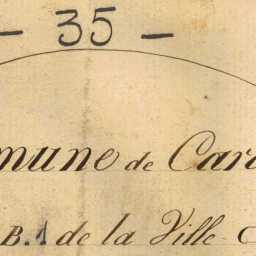 - 35 -
mune de Car
B. 1 de la Ville